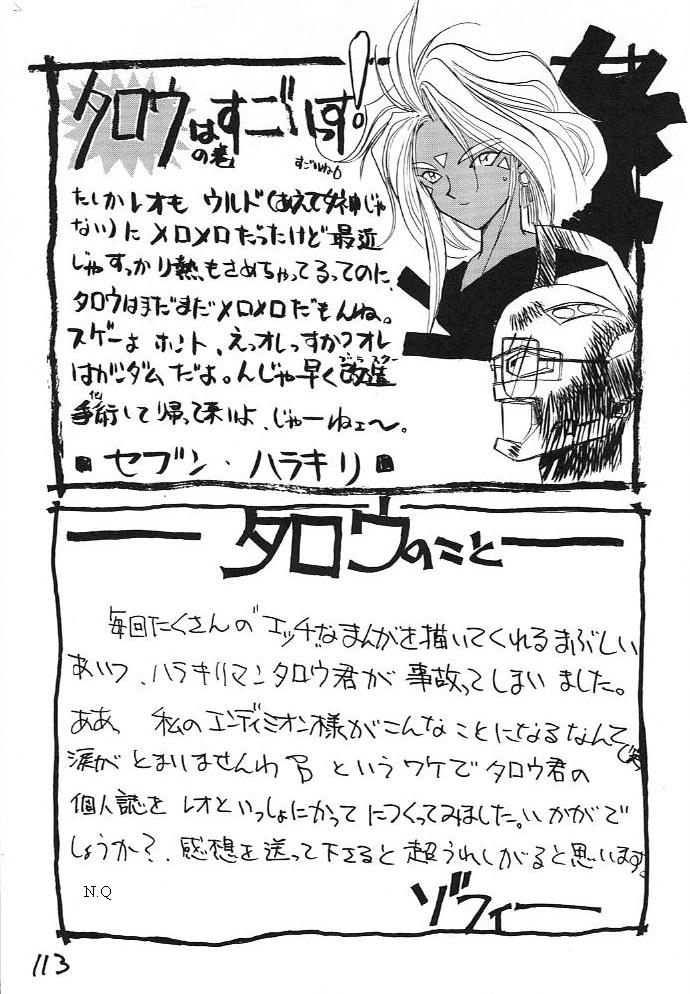 タロウはすごいっす!
の巻
すごいね
たしかレオも ウルド(あえて女神じゃ
ない)に メロメロだったけど 最近
じゃすっかり熱もさめちゃってるってのに、
タロウはまだまだメロメロだもんね。
スゲーよ ホント、えっオレっすか?オレ
はガンダムだよ。んじゃ早く改造
手術して帰って来いよ、じゃーねェ〜。
セブン・ハラキリ
タロウのこと
毎回たくさんの"エッチ"なまんがを描いてくれるまぶしい
あいつ、ハラキリマンタロウ君が 事故ってしまいました。
ああ、私のエンディミオン様がこんなことになるなんて
涙が とまりませんわ(笑) というワケでタロウ君の
個人誌を レオといっしょにかってにつくってみました。いかがで
しょうか?、感想を送って下さると 超うれしがると思います。
N.Q
ゾフィー
113